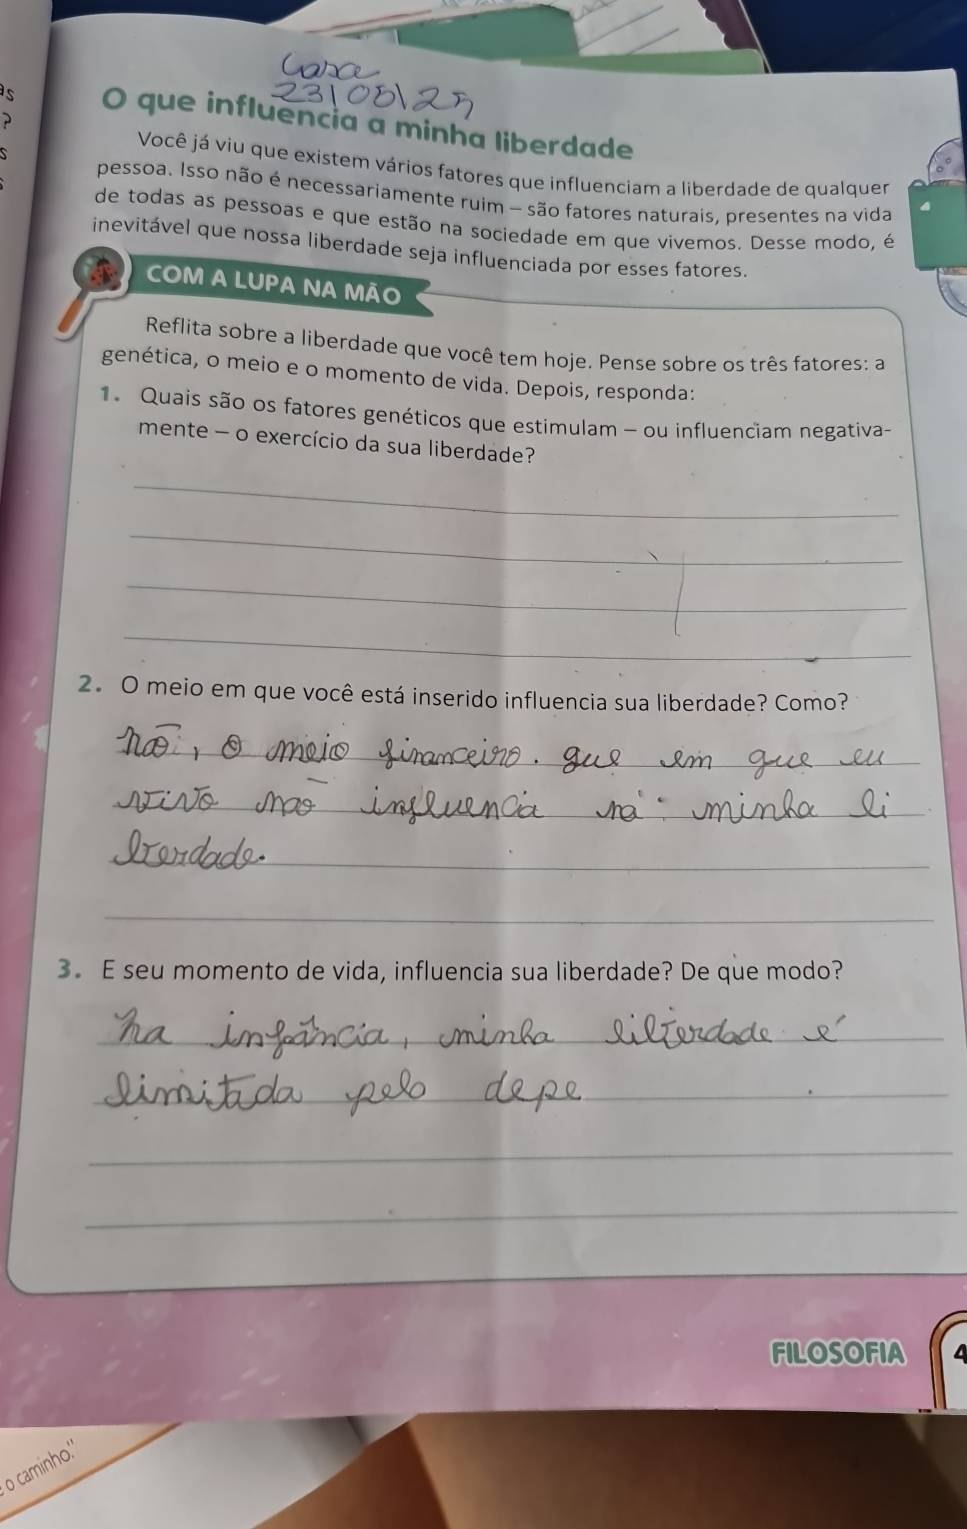 Casa
23/05/25
O que influencia a minha liberdade
Você já viu que existem vários fatores que influenciam a liberdade de qualquer
pessoa. Isso não é necessariamente ruim – são fatores naturais, presentes na vida
de todas as pessoas e que estão na sociedade em que vivemos. Desse modo, é
inevitável que nossa liberdade seja influenciada por esses fatores.
COM A LUPA NA MÃO
Reflita sobre a liberdade que você tem hoje. Pense sobre os três fatores: a
genética, o meio e o momento de vida. Depois, responda:
1. Quais são os fatores genéticos que estimulam – ou influenciam negativa-
mente – o exercício da sua liberdade?
2. O meio em que você está inserido influencia sua liberdade? Como?
não, o meio financeiro. que em que eu
vivo não influencia na minha li
berdade.
3. E seu momento de vida, influencia sua liberdade? De que modo?
na infância, minha liberdade é
limitada pelo depe
FILOSOFIA
4
o caminho."